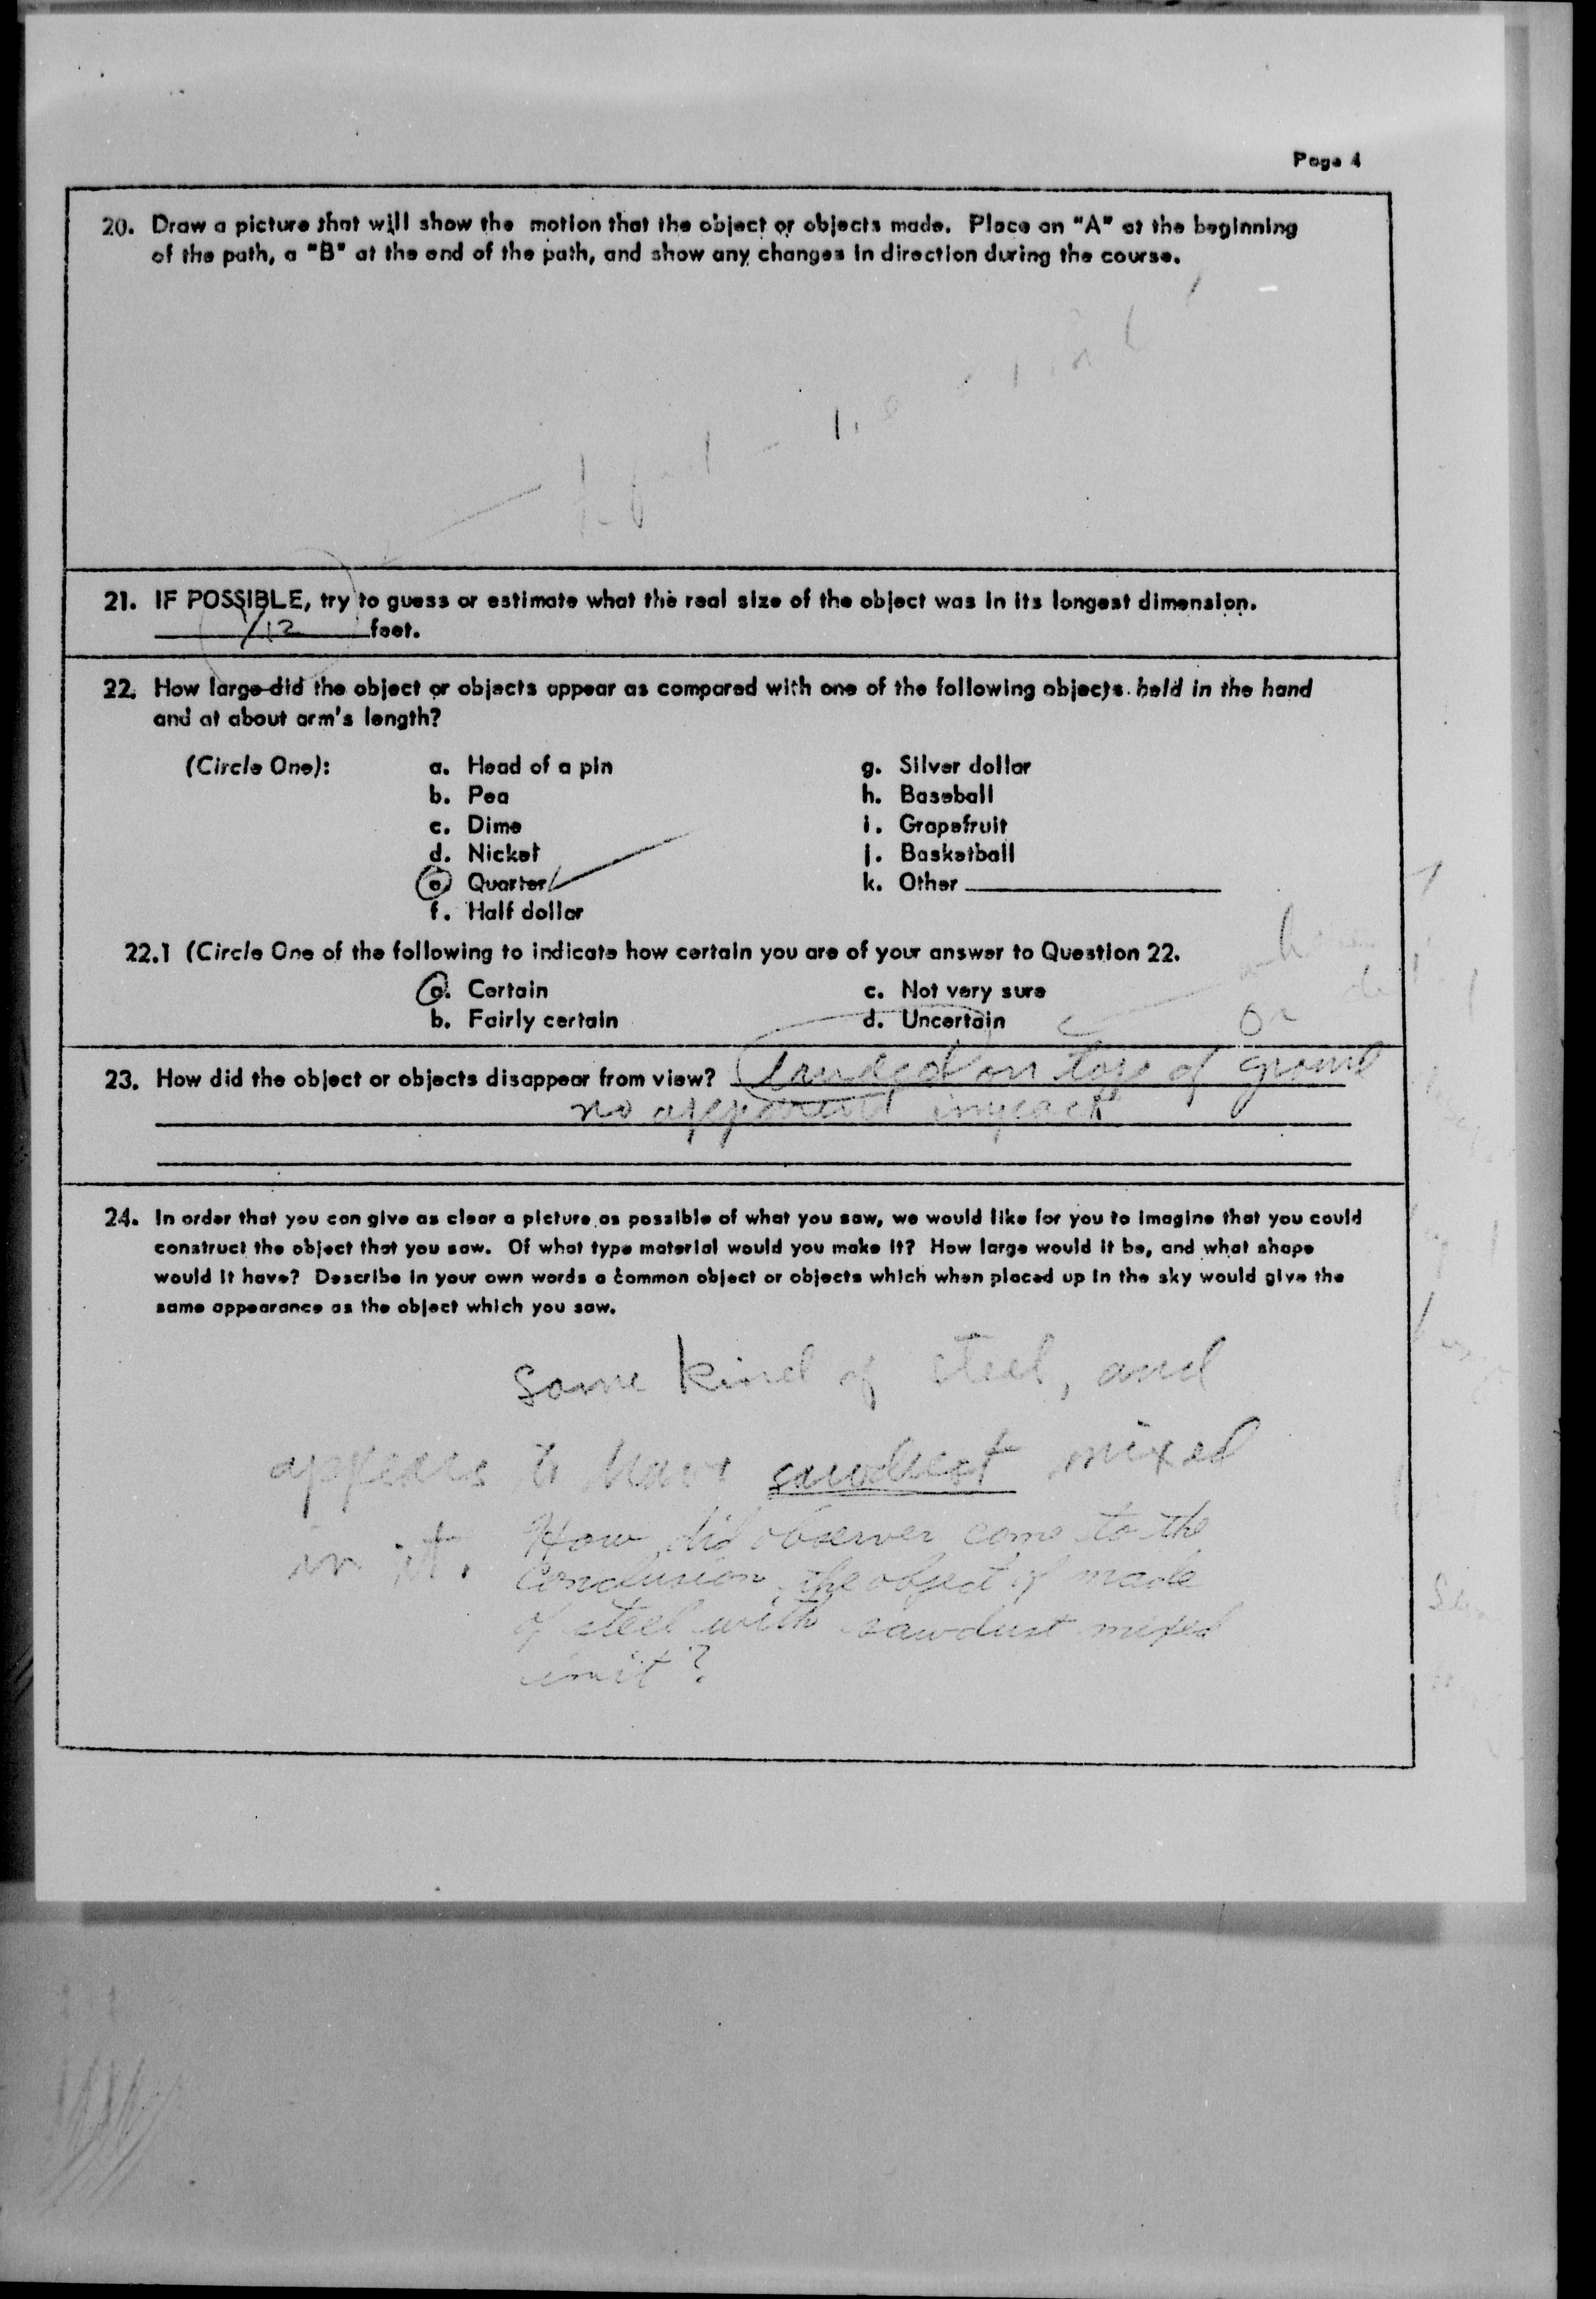 Page 4
20. Draw a picture that will show the motion that the object or objects made. Place an "A" at the beginning
of the path, a "B" at the end of the path, and show any changes in direction during the course.
21. IF POSSIBLE, try to guess or estimate what the real size of the object was in its longest dimension.
1/12 feet.
22. How large did the object or objects appear as compared with one of the following objects held in the hand
and at about arm's length?
(Circle One): a. Head of a pin g. Silver dollar
b. Pea h. Baseball
c. Dime i. Grapefruit
d. Nickel j. Basketball
e. Quarter k. Other
f. Half dollar
22.1 (Circle One of the following to indicate how certain you are of your answer to Question 22.
a. Certain c. Not very sure
b. Fairly certain d. Uncertain
or
23. How did the object or objects disappear from view? Landed on top of ground
no apparent impact
24. In order that you can give as clear a picture as possible of what you saw, we would like for you to imagine that you could
construct the object that you saw. Of what type material would you make it? How large would it be, and what shape
would it have? Describe in your own words a common object or objects which when placed up in the sky would give the
same appearance as the object which you saw.
Some kind of steel, and
appears to have sawdust mixed
in it.
How did observer come to the
conclusion the object if made
of steel with sawdust mixed
in it?